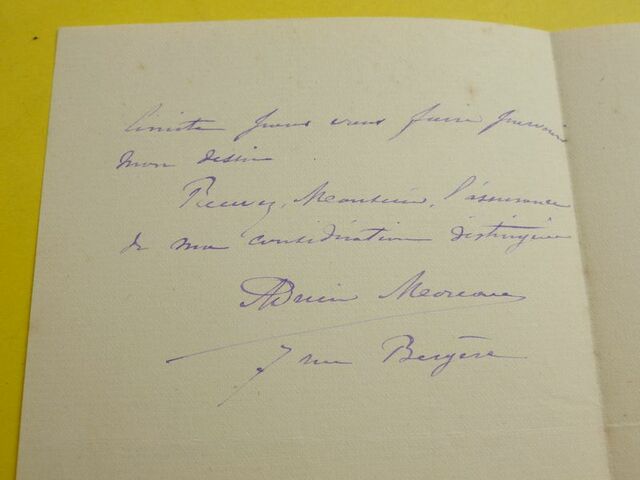 limite pour vous faire parvenir
mon dessin
Recevez, Monsieur, l'assurance
de ma considération distinguée
Adrien Moreau
7 rue Bergère